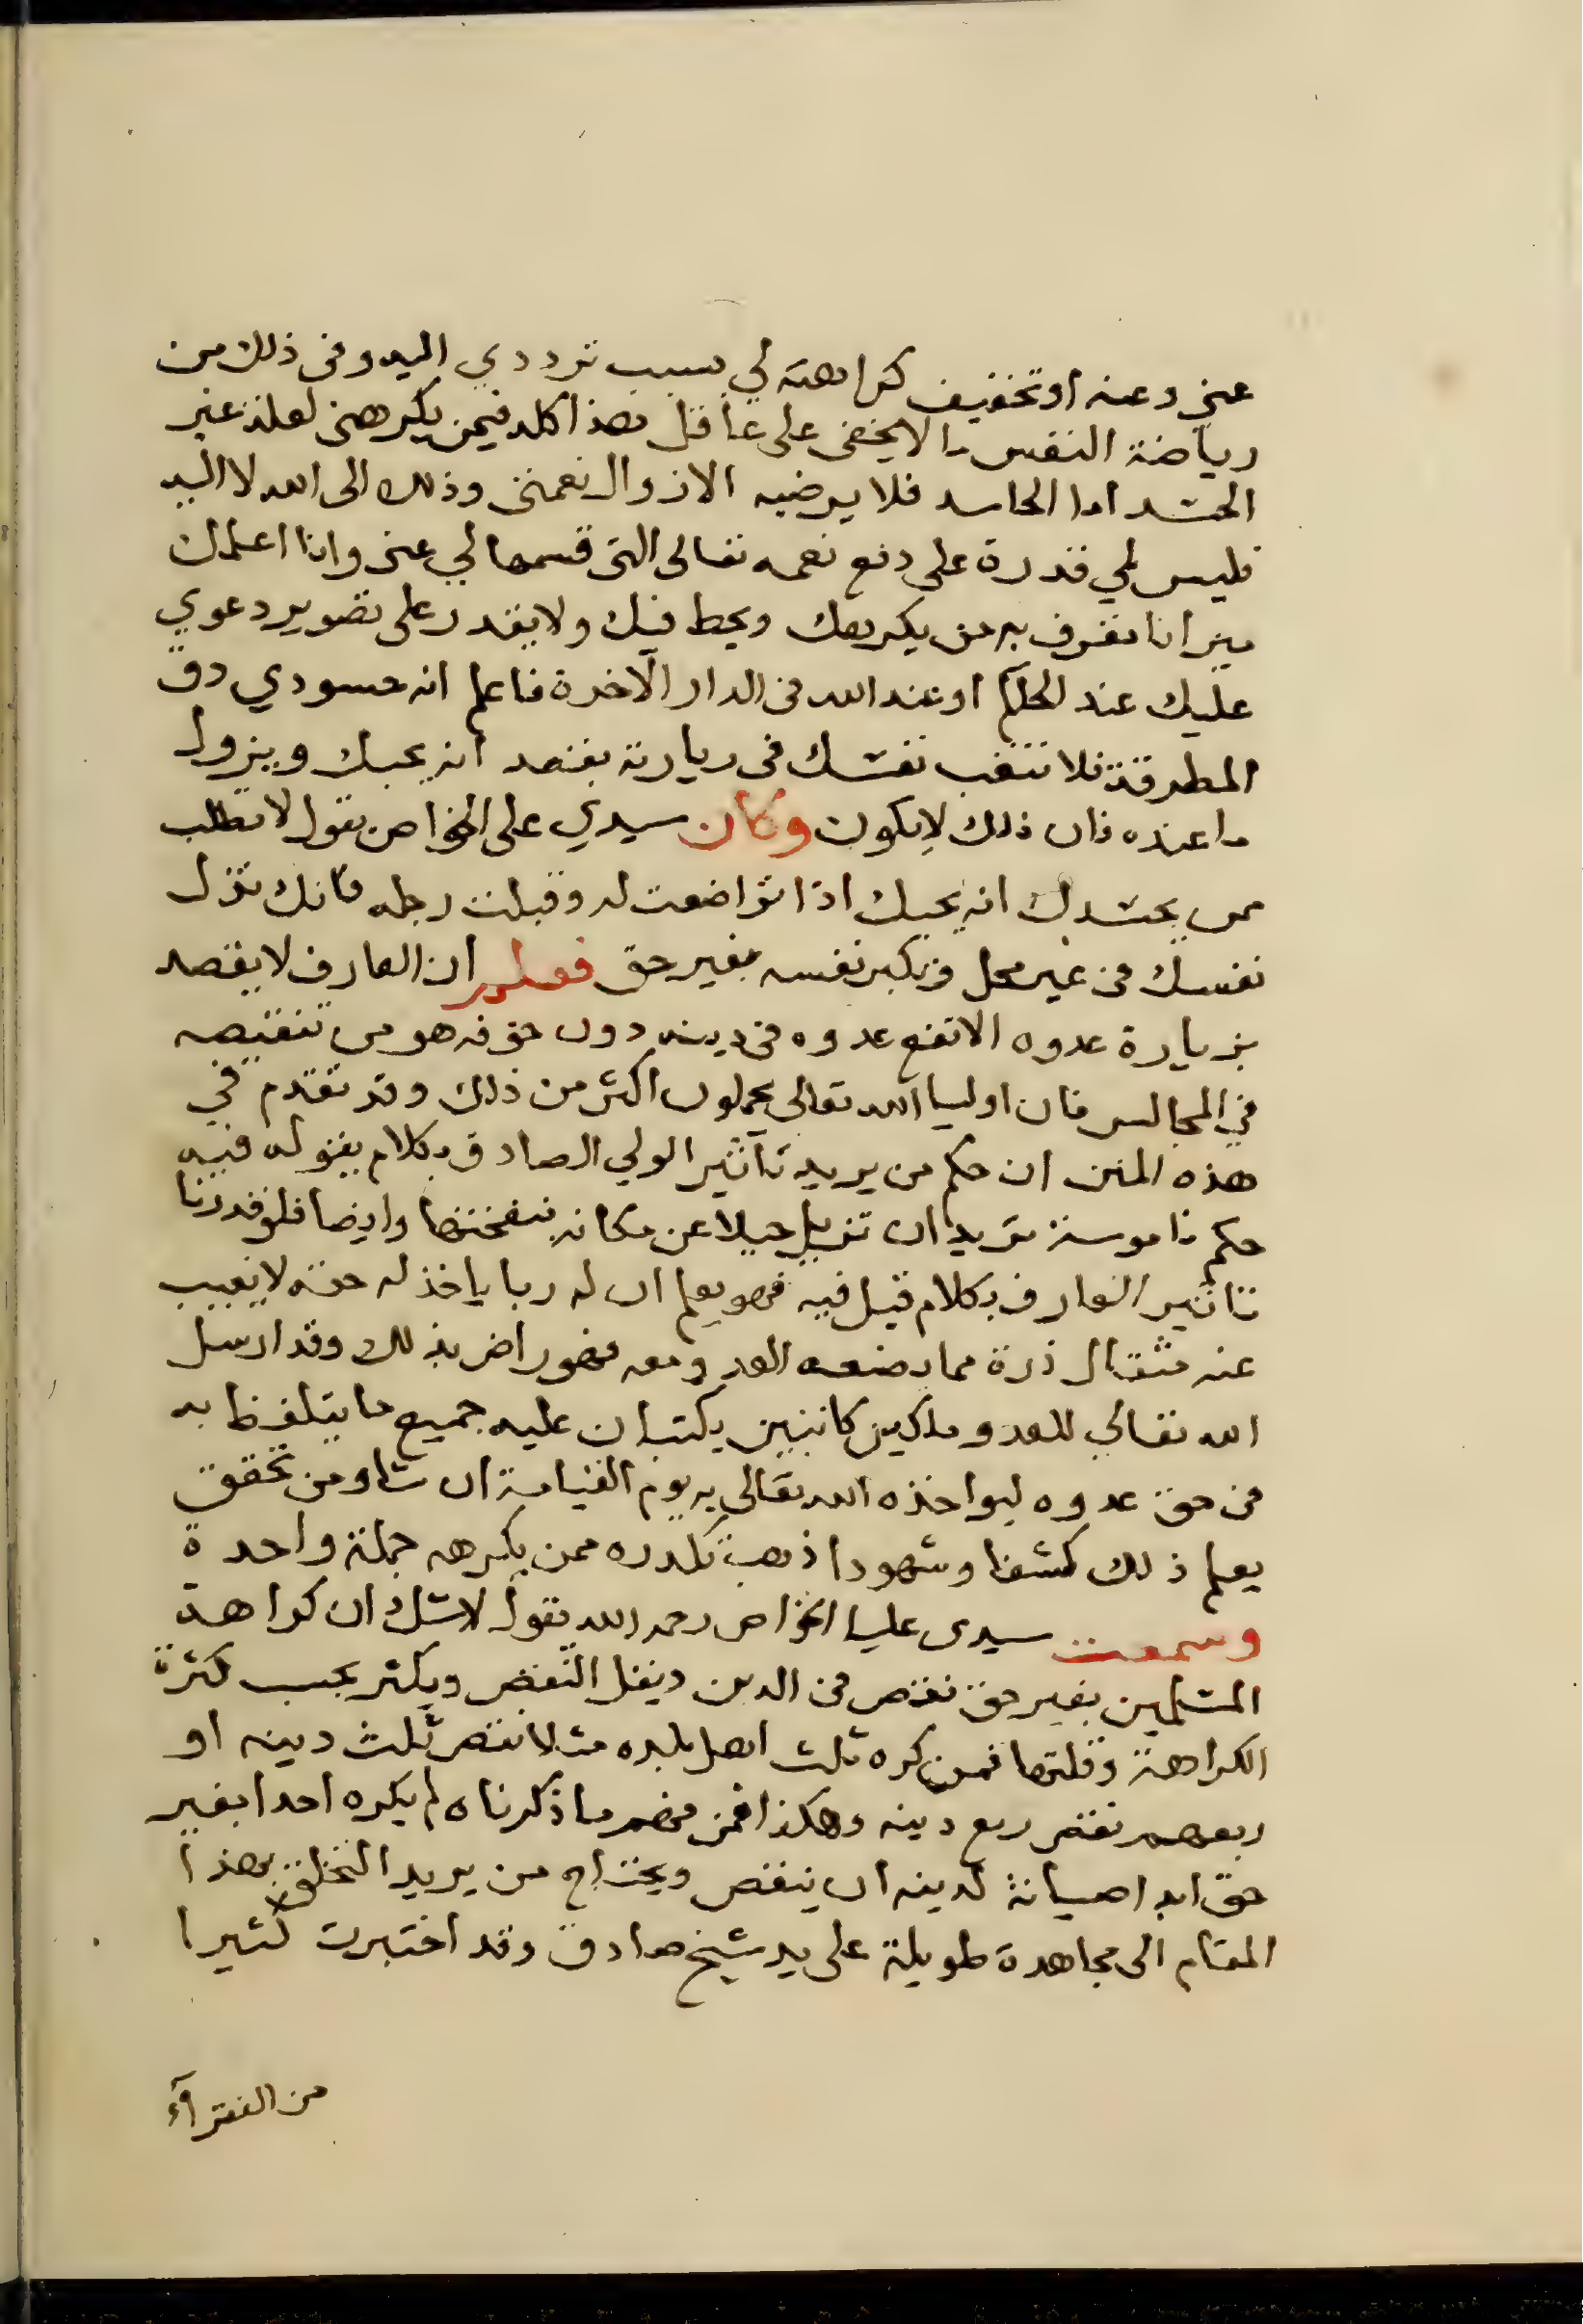 عني وعنه او تخفيف كراهته لي بسبب ترددي اليه وفي ذلك من
رياضة النفس ما لا يخفى على عاقل هذا كله فيمن يكرهني لعلة غير
الحسد اما الحاسد فلا يرضيه الا زوال نعمتي وذلك الى الله لا اليه
فليس لي قدرة على دفع نعمه تعالى التي قسمها لي عني وانا اعلمك
ميزانا تعرف به من يكرهك ويحط فيك ولا يقدر على تصوير دعوي
عليك عند الحكم او عند الله في الدار الآخرة فاعلم انه حسودي دق
المطرقة فلا تتعب نفسك في زيارته بقصد انه يحبك ويزول
ما عنده فان ذلك لا يكون وكان سيدي علي الخواص يقول لا تطلب
ممن يحسدك انه يحبك اذا تواضعت له وقبلت رجله فانك تذل
نفسك في غير محل وتكبر نفسه بغير حق فعلم ان العارف لا يقصد
بزيارة عدوه الا نفع عدوه في دينه دون خوفه هو من تنقيصه
في المجالس فان اوليا الله تعالى يحملون اكثر من ذلك وقد تقدم في
هذه المنن ان حكم من يريد تاثير الولي الصادق بكلام يقوله فيه
حكم ناموسة تريد ان تزيل جبلا عن مكانه بنفختها وايضا فلو قدرنا
تاثير العارف بكلام قيل فيه فهو يعلم ان له ربا ياخذ له حقه لا يغيب
عنه مثقال ذرة مما يصنعه العدو معه فهو راض بذلك وقد ارسل
الله تعالي للعدو ملكين كاتبين يكتبان عليه جميع ما يتلفظ به
في حق عدوه ليواخذه الله تعالى به يوم القيامة ان شا ومن تحقق
يعلم ذلك كشفا وشهودا ذهب تكدره ممن يكرهه جملة واحدة
وسمعت سيدي عليا الخواص رحمه الله يقول لا شك ان كراهة
المسلمين بغير حق نقص في الدين ويقل النقص ويكثر بحسب كثرة
الكراهة وقلتها فمن كره ثلث اهل بلده مثلا نقص ثلث دينه او
ربعهم نقص ربع دينه وهكذا فمن فهم ما ذكرناه لم يكره احدا بغير
حق ابدا صيانة لدينه ان ينقص ويحتاج من يريد التخلق بهذا
المقام الى مجاهدة طويلة على يد شيخ صادق وقد اختبرت كثيرا
من الفقرآء